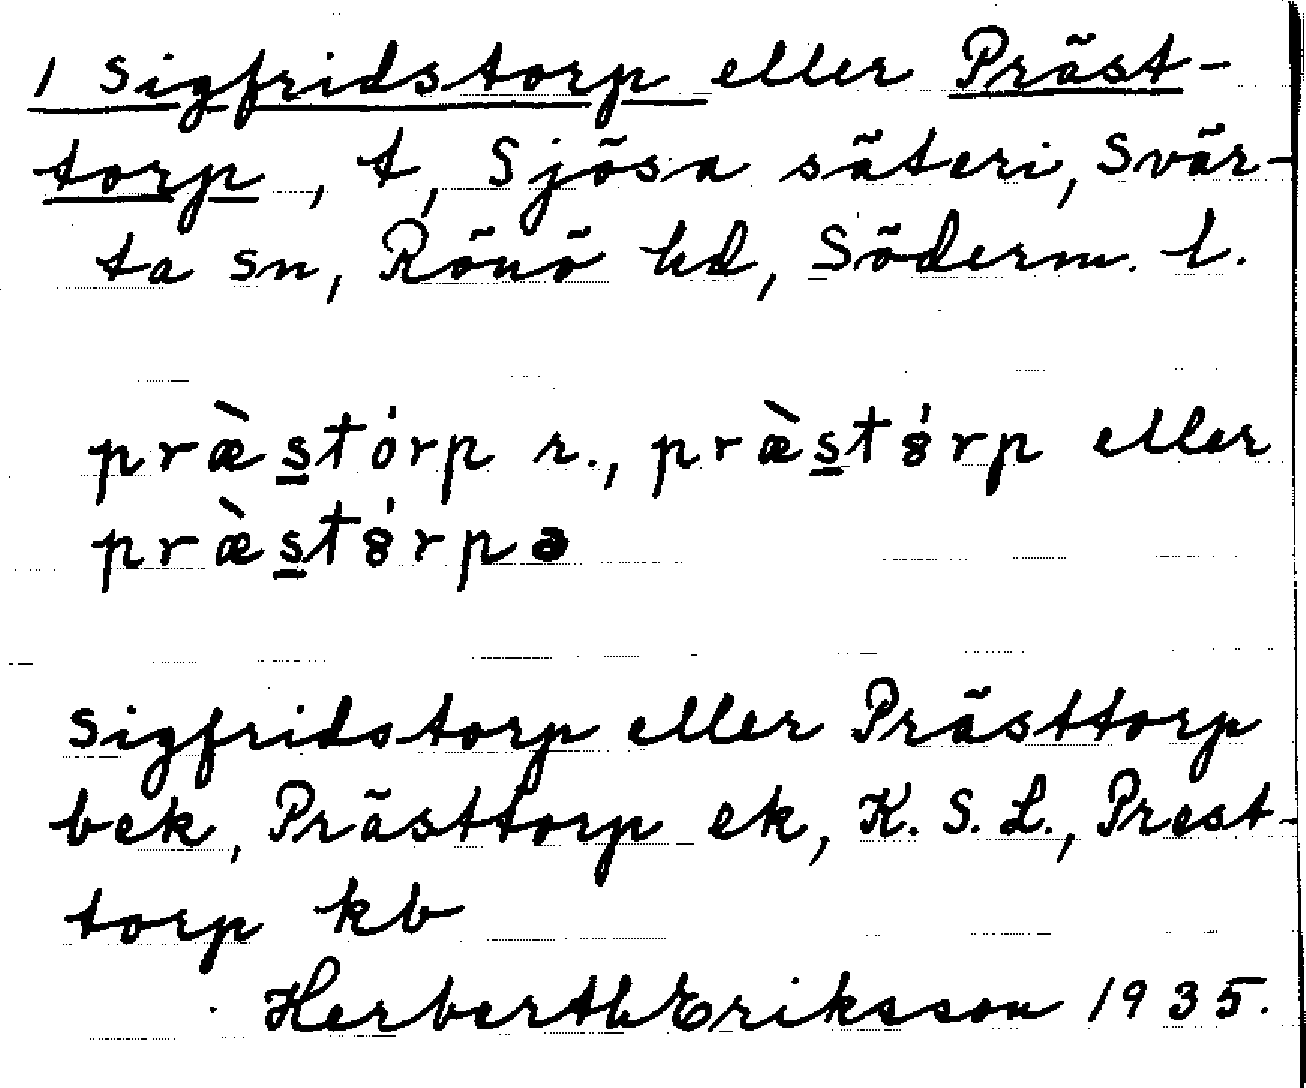 1 Sigfridstorp eller Präst-
torp, t, Sjösa säteri, Svär-
ta sn, Rönö hd, Söderm. l.
præ̀stȯrp r., præ̀st8̇rp eller
præ̀st8̇rpə
Sigfridstorp eller Prästtorp
bek, Prästtorp ek, K. S. L., Prest-
torp kb
Herberth Eriksson 1935.